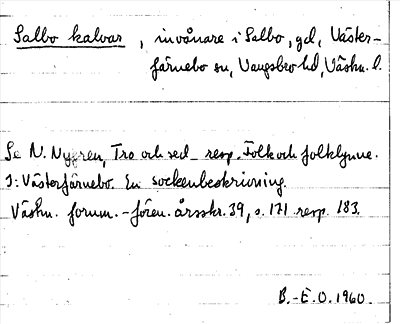 Salbo kalvar, invånare i Salbo, gd, Väster-
färnebo sn, Vangsbro hd, Västm. l.
Se N. Nygren, Tro och sed resp. Folk och folklynne.
I: Västerfärnebo. En sockenbeskrivning.
Västm. fornm.-fören. årsskr. 39, s. 171 resp. 183.
B.-E.O. 1960.